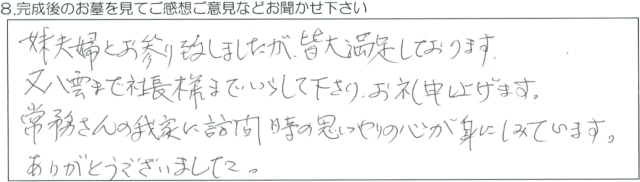 8.完成後のお墓を見てご感想ご意見などお聞かせ下さい
妹夫婦とお参り致しましたが、皆大満足しております。
又八雲まで社長様までいらして下さり、お礼申し上げます。
常務さんの我家に訪問時の思いやりの心が身にしみています。
ありがとうございました。